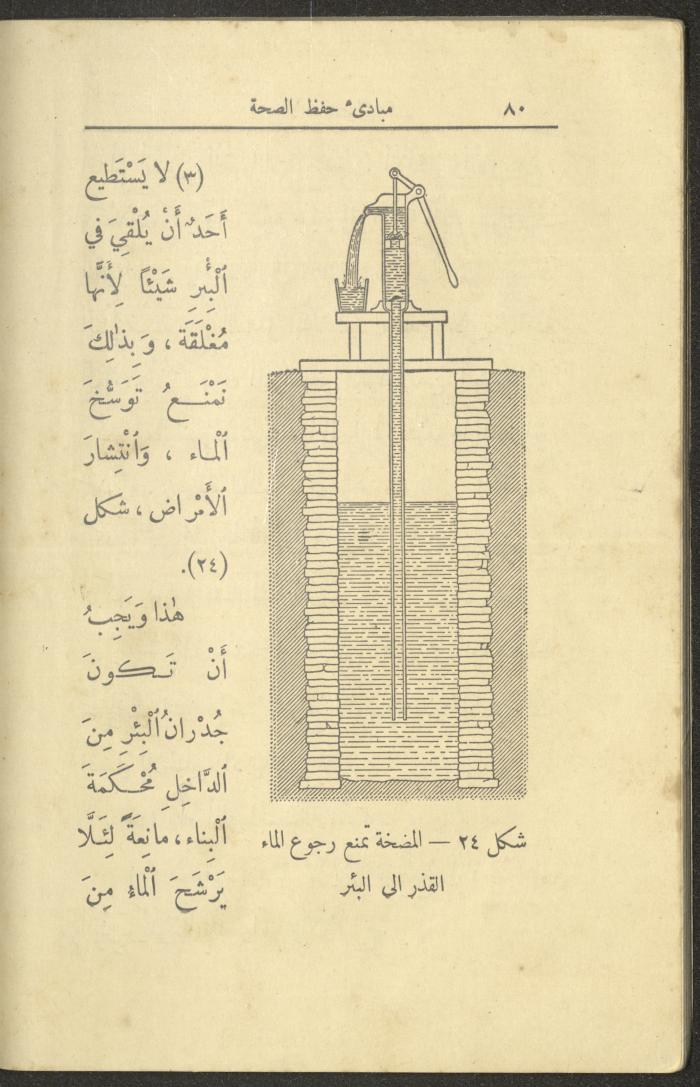 ٨٠
مبادىء حفظ الصحة
(٣) لا يَسْتَطيع
أَحَدٌ أَنْ يُلْقِيَ في
ٱلْبِئْرِ شَيْئاً لِأَنَّها
مُغْلَقَة ، وَ بِذٰلِكَ
نَمْنَـــعُ تَوَسُّخَ
ٱلْمـاء ، وَٱنْتِشارَ
ٱلأَمْراض ، شكل
(٢٤).
هٰذا وَيَجِبُ
أَنْ تَـكونَ
جُدْرانُ ٱلْبِئْرِ مِنَ
ٱلدَّاخِلِ مُحْـكَمَةَ
ٱلْبِناء ، مانِعَةً لِئَـلَّا
يَرْشَـحَ ٱلْماءُ مِنَ
شكل ٢٤ — المضخة تمنع رجوع الماء
القذر الى البئر